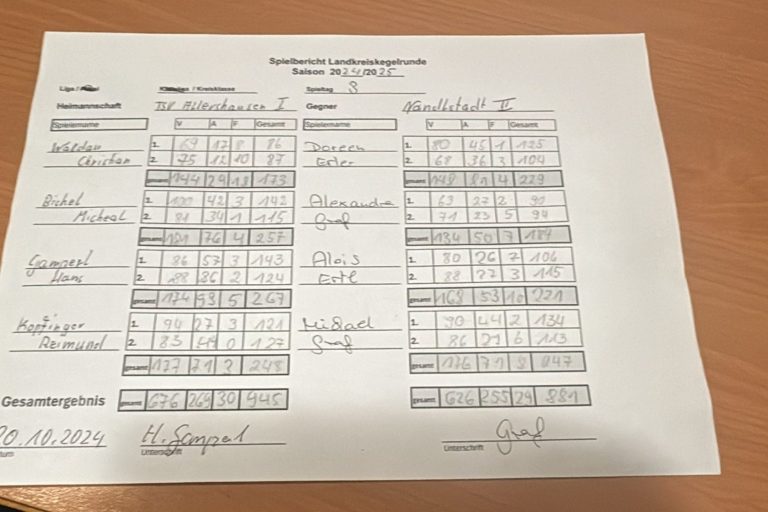 Spielbericht Landkreiskegelrunde
Saison 2024/2025
Spieltag 8
Heimannschaft TSV Allershausen I Gegner Nandlstadt II
Spielername V A F Gesamt Spielername V A F Gesamt
Waldau 1. 69 17 8 86 Doreen 1. 80 45 1 125
Christian 2. 75 12 10 87 Erler 2. 68 36 3 104
gesamt 144 29 18 173 gesamt 148 81 4 229
Bichel 1. 100 42 3 142 Alexandra 1. 63 27 2 90
Micheal 2. 81 34 1 115 Graf 2. 71 23 5 94
gesamt 76 4 257 gesamt 134 50 7 184
Gamperl 1. 86 57 3 143 Alois 1. 80 26 7 106
Hans 2. 88 36 2 124 Ertl 2. 88 27 3 115
gesamt 174 93 5 267 gesamt 168 53 10 221
Kopfinger 1. 94 27 3 121 1. 90 44 2 134
Reimund 2. 83 44 0 127 Graf 2. 86 27 6 113
gesamt 71 3 248 gesamt 176 71 8 247
Gesamtergebnis gesamt 676 269 30 945 gesamt 626 255 29 881
10.2024 H. Gamperl Graf
Unterschrift Unterschrift